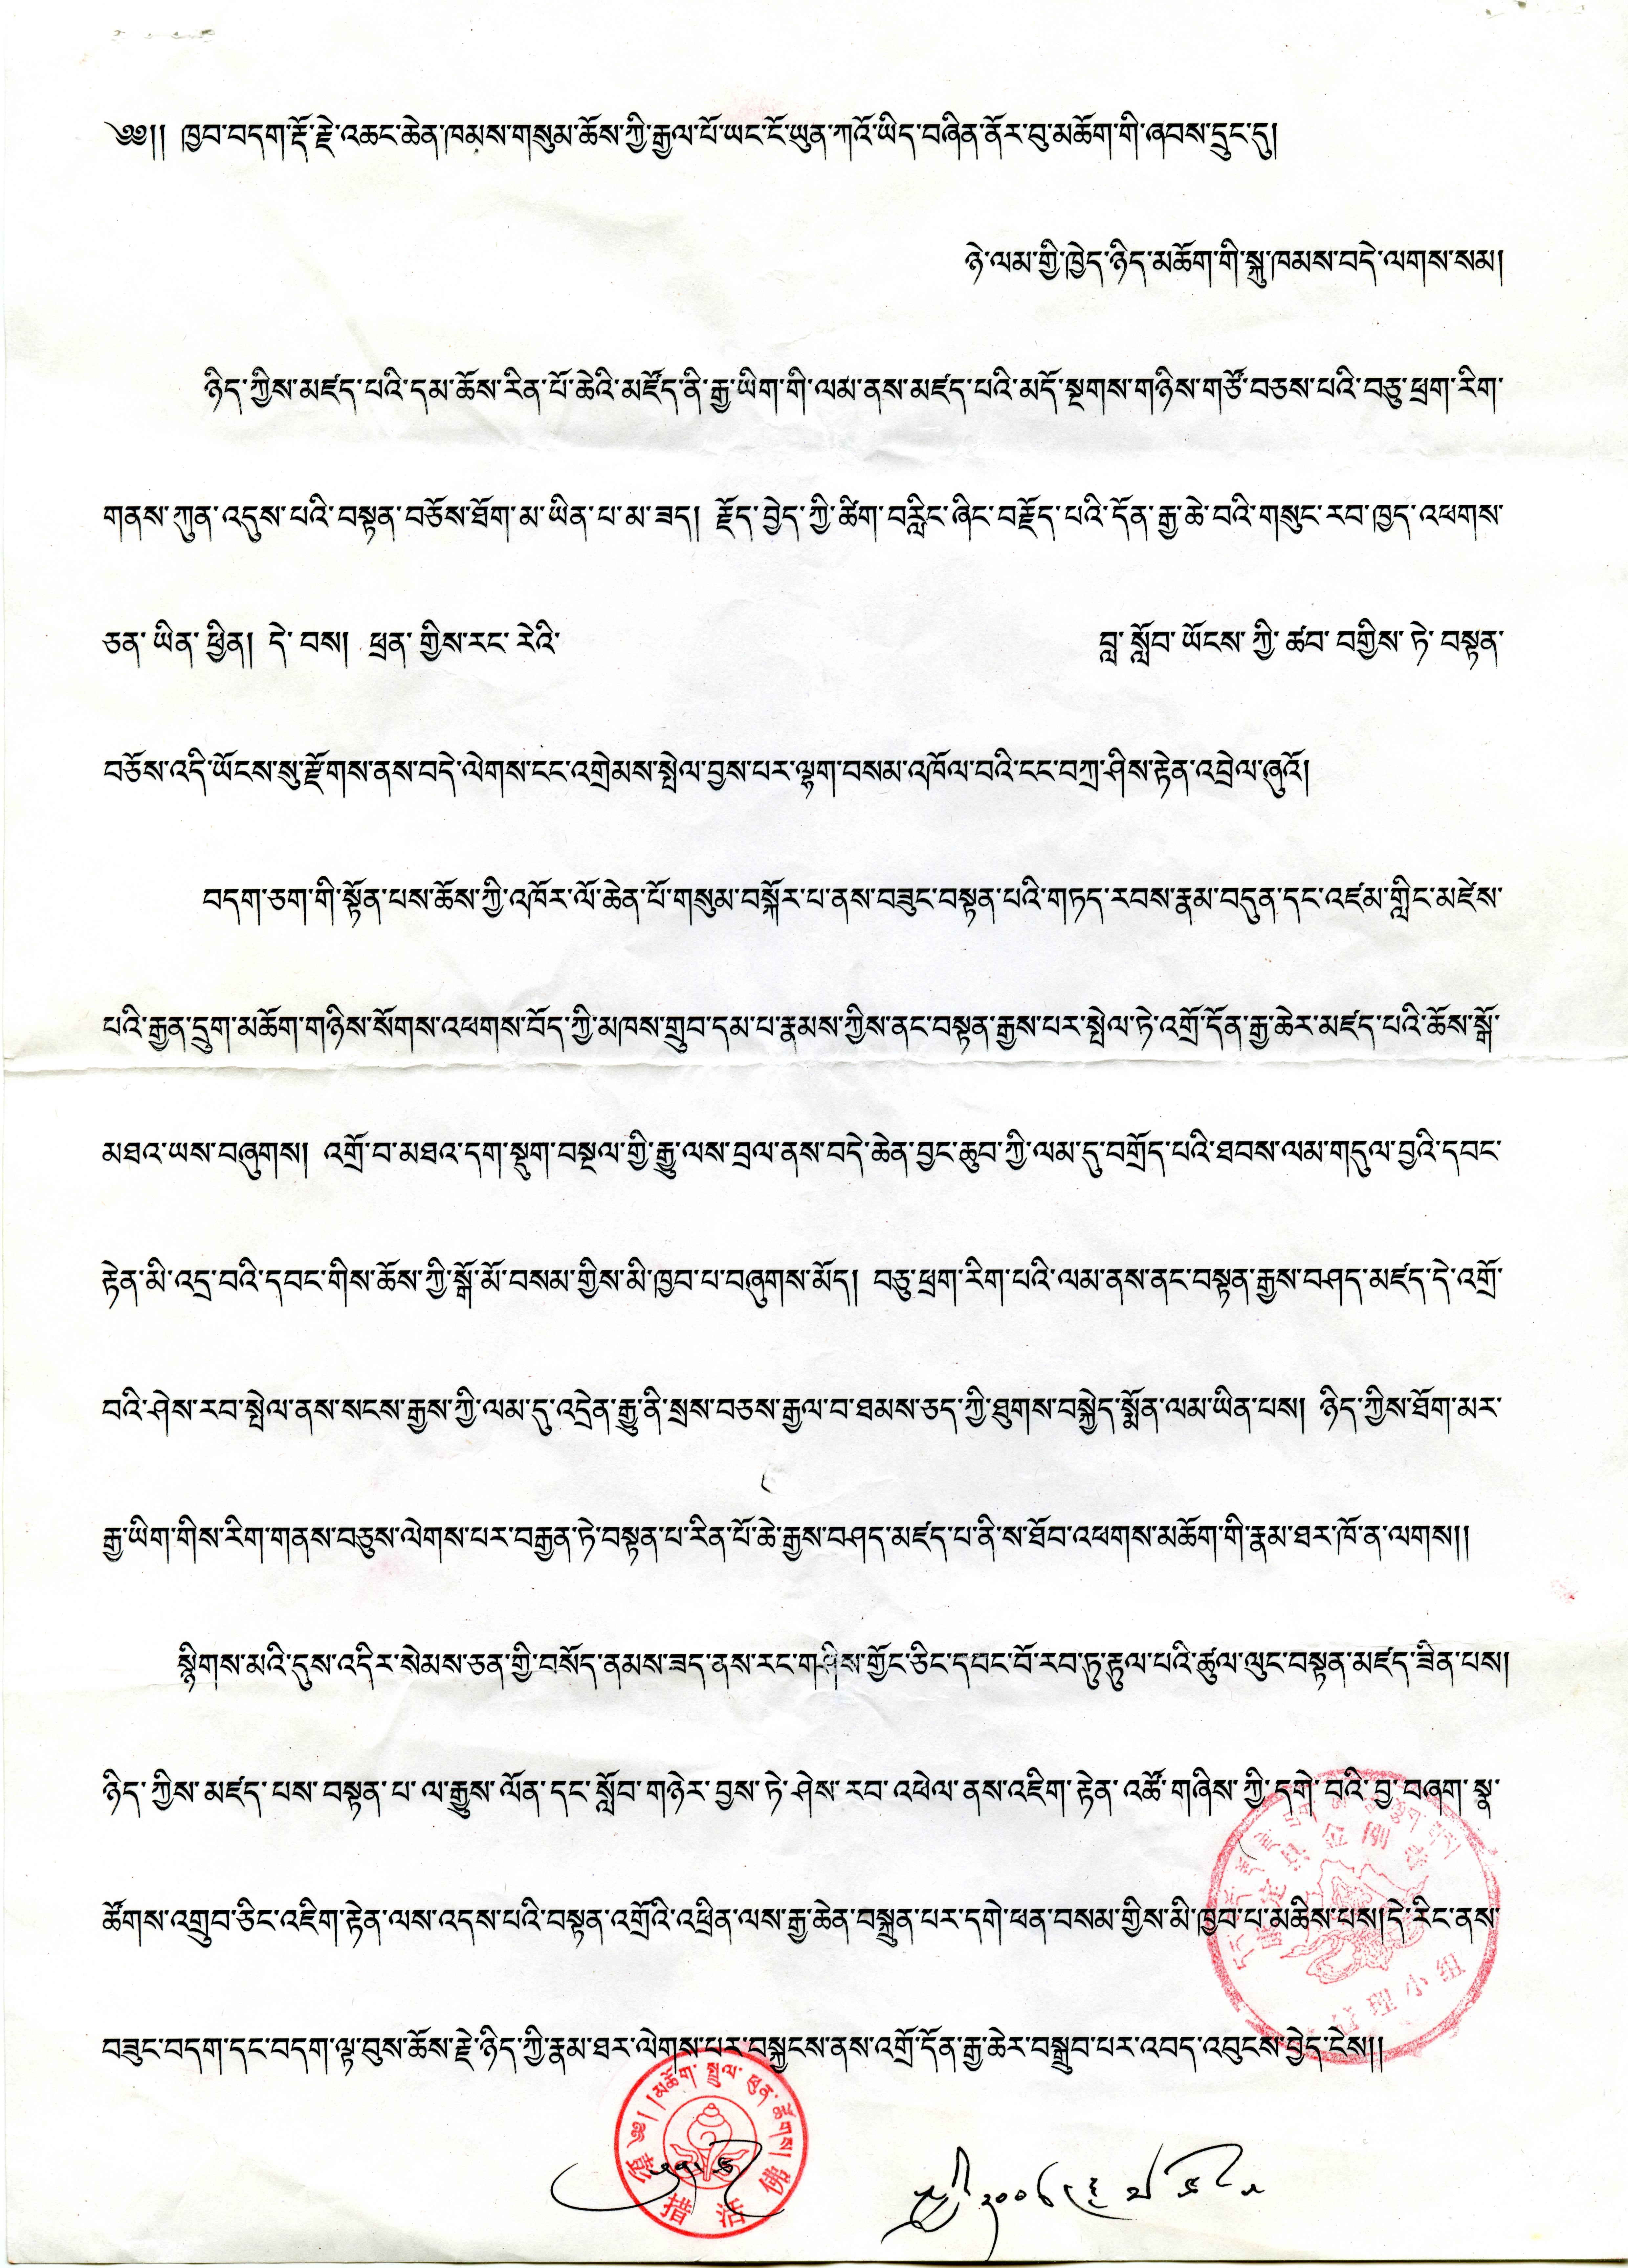 ༄༅།། ཁྱབ་བདག་རྡོ་རྗེ་འཆང་ཆེན་ཁམས་གསུམ་ཆོས་ཀྱི་རྒྱལ་པོ་ཡང་ངོ་ཡུན་ཀའོ་ཡིད་བཞིན་ནོར་བུ་མཆོག་གི་ཞབས་དྲུང་དུ།
ཉེ་ལམ་གྱི་ཁྱེད་ཉིད་མཆོག་གི་སྐུ་ཁམས་བདེ་ལགས་སམ།
ཉིད་ཀྱིས་མཛད་པའི་དམ་ཆོས་རིན་པོ་ཆེའི་མཛོད་ནི་རྒྱ་ཡིག་གི་ལམ་ནས་མཛད་པའི་མདོ་སྔགས་གཉིས་གཙོ་བཅས་པའི་བཅུ་ཕྲག་རིག་
གནས་ཀུན་འདུས་པའི་བསྟན་བཅོས་ཐོག་མ་ཡིན་པ་མ་ཟད། རྗོད་བྱེད་ཀྱི་ཚིག་བརླིང་ཞིང་བརྗོད་པའི་དོན་རྒྱ་ཆེ་བའི་གསུང་རབ་ཁྱད་འཕགས་
ཅན་ཡིན་ཕྱིན། དེ་བས། ཕྲན་གྱིས་རང་རེའི་ བླ་སློབ་ཡོངས་ཀྱི་ཚབ་བགྱིས་ཏེ་བསྟན་
བཅོས་འདི་ཡོངས་སུ་རྫོགས་ནས་བདེ་ལེགས་ངང་འགྲེམས་སྤེལ་བྱས་པར་ལྷག་བསམ་འཁོལ་བའི་ངང་བཀྲ་ཤིས་རྟེན་འབྲེལ་ཞུའོ།
བདག་ཅག་གི་སྟོན་པས་ཆོས་ཀྱི་འཁོར་ལོ་ཆེན་པོ་གསུམ་བསྐོར་པ་ནས་བཟུང་བསྟན་པའི་གཏད་རབས་རྣམ་བདུན་དང་འཛམ་གླིང་མཛེས་
པའི་རྒྱན་དྲུག་མཆོག་གཉིས་སོགས་འཕགས་བོད་ཀྱི་མཁས་གྲུབ་དམ་པ་རྣམས་ཀྱིས་ནང་བསྟན་རྒྱས་པར་སྤེལ་ཏེ་འགྲོ་དོན་རྒྱ་ཆེར་མཛད་པའི་ཆོས་སྒོ་
མཐའ་ཡས་བཞུགས། འགྲོ་བ་མཐའ་དག་སྡུག་བསྔལ་གྱི་རྒྱུ་ལས་བྲལ་ནས་བདེ་ཆེན་བྱང་ཆུབ་ཀྱི་ལམ་དུ་བགྲོད་པའི་ཐབས་ལམ་གདུལ་བྱའི་དབང་
རྟེན་མི་འདྲ་བའི་དབང་གིས་ཆོས་ཀྱི་སྒོ་མོ་བསམ་གྱིས་མི་ཁྱབ་པ་བཞུགས་མོད། བཅུ་ཕྲག་རིག་པའི་ལམ་ནས་ནང་བསྟན་རྒྱས་བཤད་མཛད་དེ་འགྲོ་
བའི་ཤེས་རབ་སྤེལ་ནས་སངས་རྒྱས་ཀྱི་ལམ་དུ་འདྲེན་རྒྱུ་ནི་སྲས་བཅས་རྒྱལ་བ་ཐམས་ཅད་ཀྱི་ཐུགས་བསྐྱེད་སྨོན་ལམ་ཡིན་པས། ཉིད་ཀྱིས་ཐོག་མར་
རྒྱ་ཡིག་གིས་རིག་གནས་བཅུས་ལེགས་པར་བརྒྱན་ཏེ་བསྟན་པ་རིན་པོ་ཆེ་རྒྱས་བཤད་མཛད་པ་ནི་ས་ཐོབ་འཕགས་མཆོག་གི་རྣམ་ཐར་ཁོ་ན་ལགས།།
སྙིགས་མའི་དུས་འདིར་སེམས་ཅན་གྱི་བསོད་ནམས་ཟད་ནས་རང་གཤིས་གྱོང་ཅིང་དབང་པོ་རབ་ཏུ་རྟུལ་པའི་ཚུལ་ལུང་བསྟན་མཛད་ཟིན་པས།
ཉིད་ཀྱིས་མཛད་པས་བསྟན་པ་ལ་རྒྱུས་ལོན་དང་སློབ་གཉེར་བྱས་ཏེ་ཤེས་རབ་འཕེལ་ནས་འཇིག་རྟེན་འཚོ་གཞིས་ཀྱི་དགེ་བའི་བྱ་བཞག་སྣ་
ཚོགས་འགྲུབ་ཅིང་འཇིག་རྟེན་ལས་འདས་པའི་བསྟན་འགྲོའི་འཕྲིན་ལས་རྒྱ་ཆེན་བསྐྲུན་པར་དགེ་ཕན་བསམ་གྱིས་མི་ཁྱབ་པ་མཆིས་པས།དེ་རིང་ནས་
བཟུང་བདག་དང་བདག་ལྟ་བུས་ཆོས་རྗེ་ཉིད་ཀྱི་རྣམ་ཐར་ལེགས་པར་བསྐྱངས་ནས་འགྲོ་དོན་རྒྱ་ཆེར་བསྒྲུབ་པར་འབད་འབུངས་བྱེད་ངེས།།
མཆོག་སྤྲུལ་ཕུན་ཚོགས།
措 活
理小组